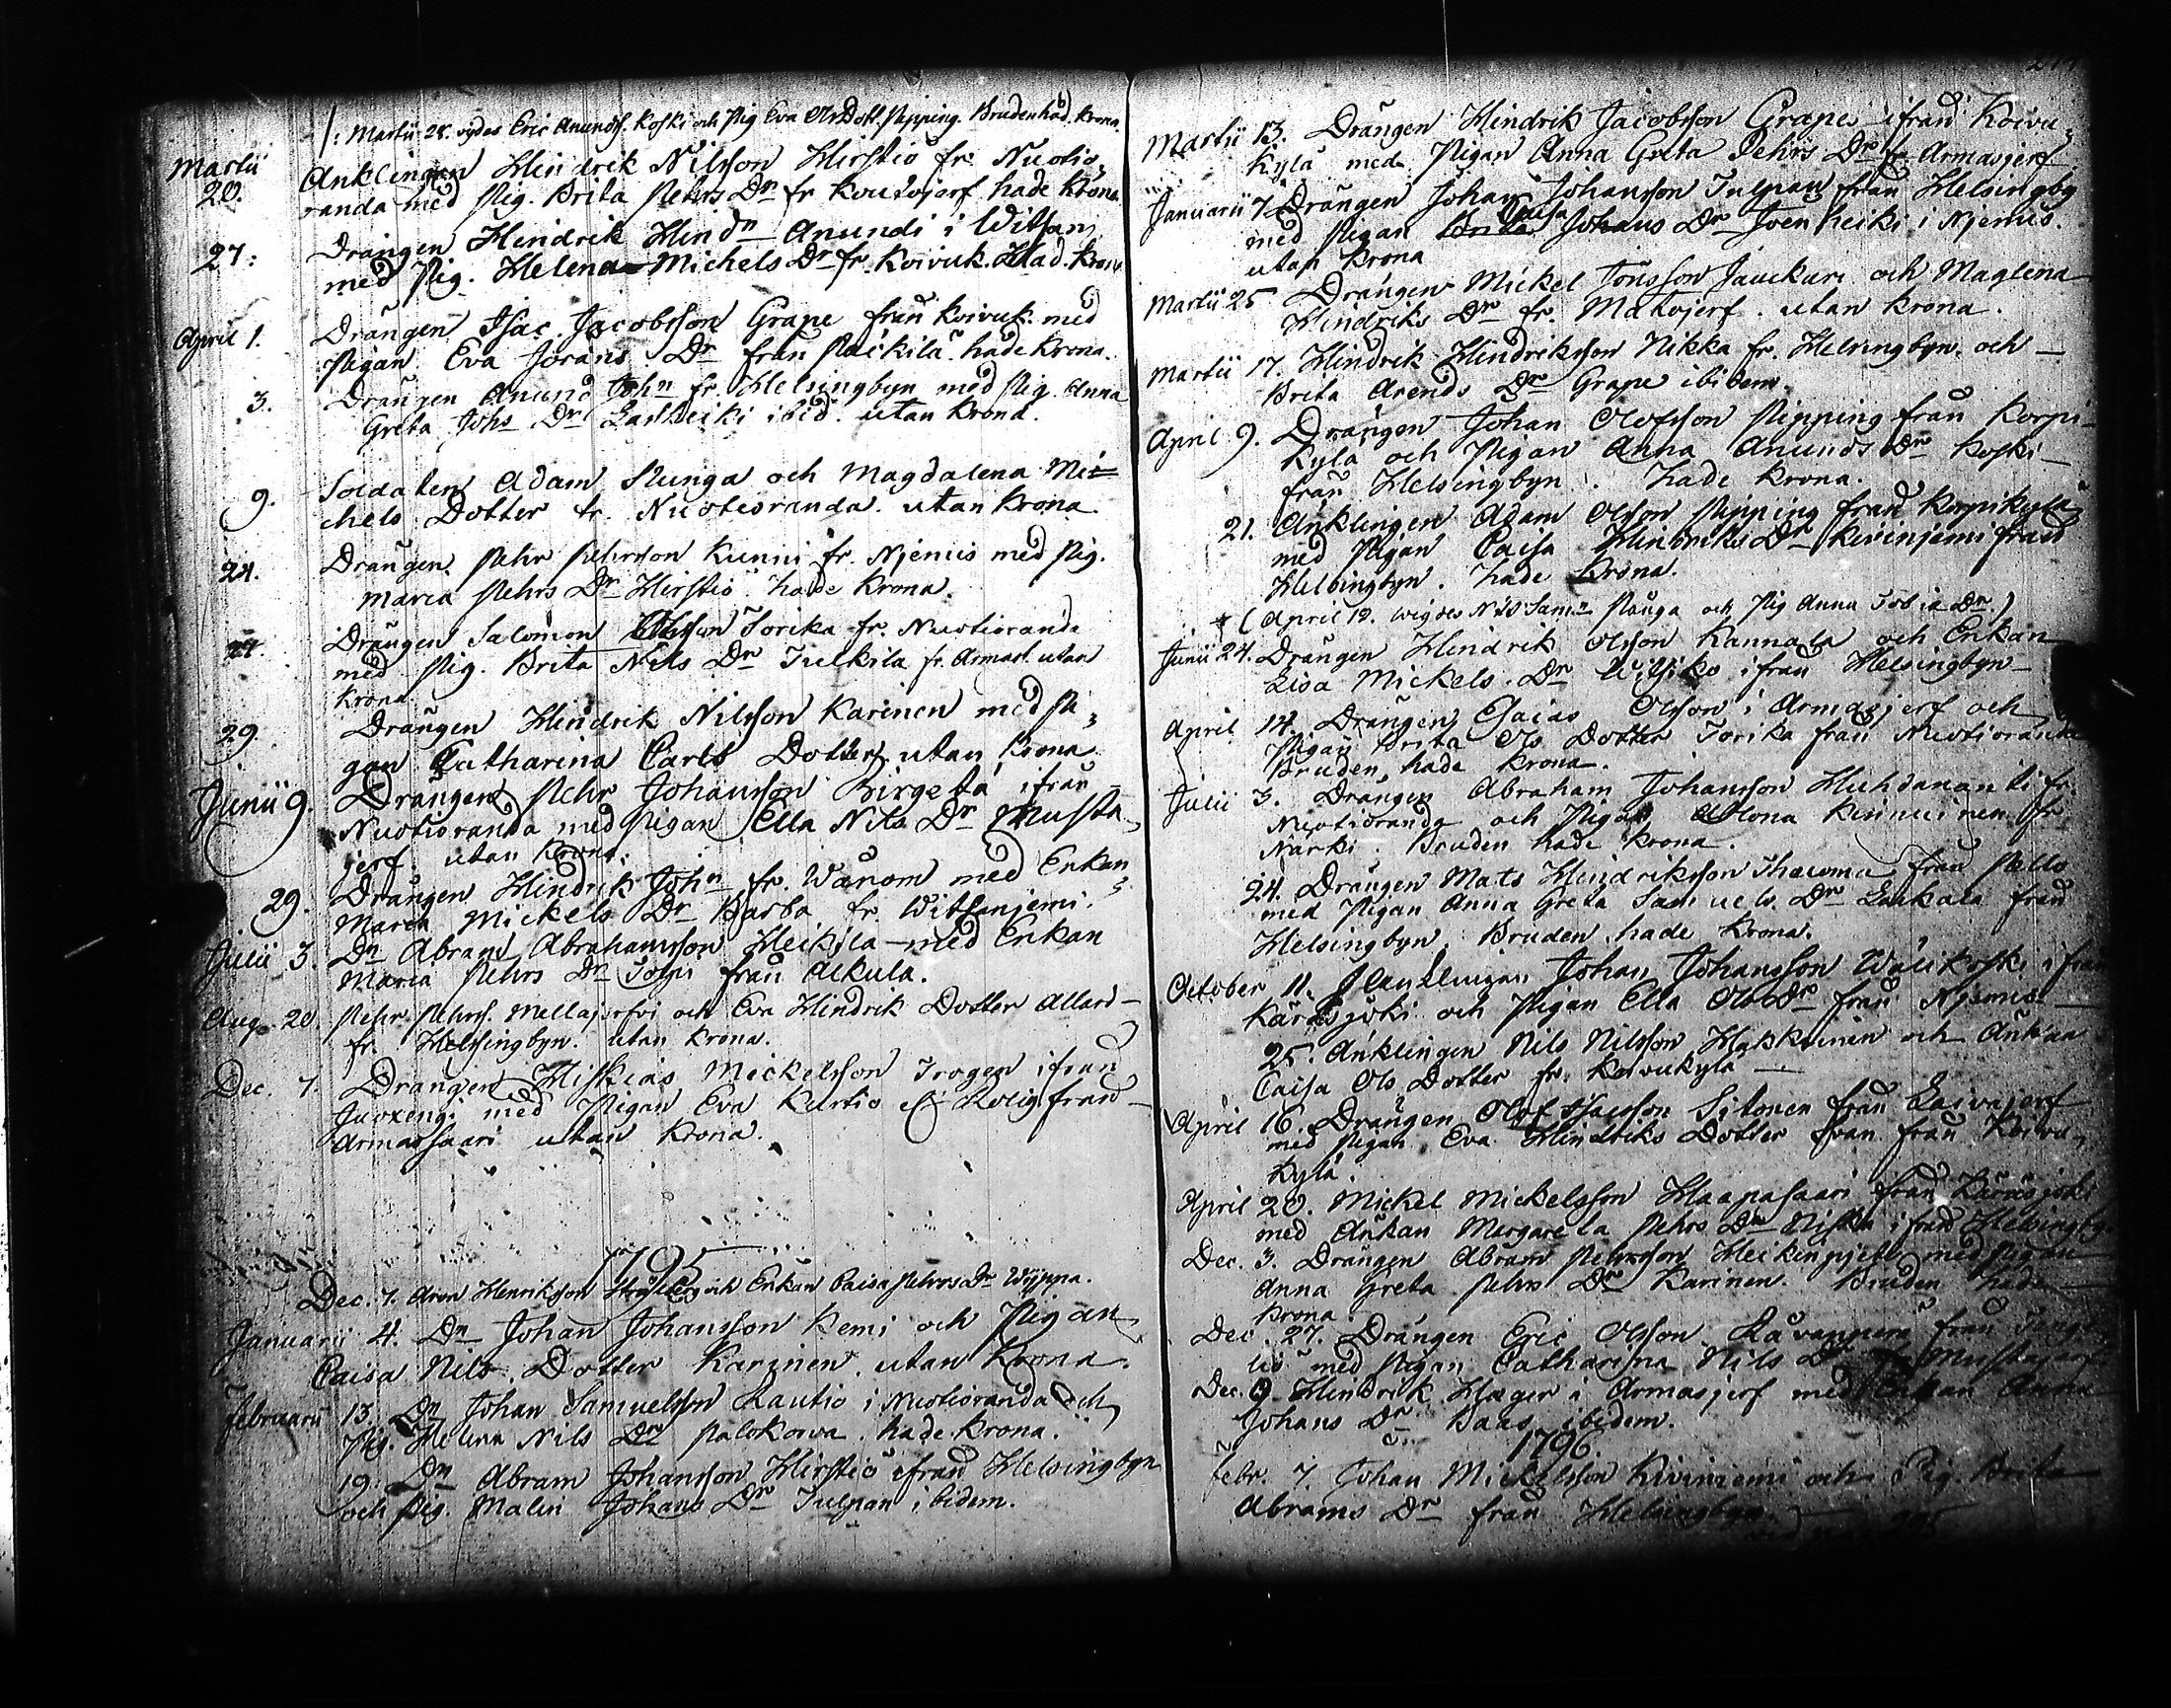 /: Martii 28. vigdes Eric Anundss. Koski och Pig Eva Ols Dott. Pipping. Bruden had. Krona.
Martii 20. Anklingen Hindrik Nilsson Hirstiö fr. Nuotio,
randa med Pig. Brita Pehrs Dr fr Koutojerf hade Krona.
27. Drängen Hindrik Hindn Anundi i Witsan,
med Pig. Helena Michels Dr fr. Koivuk. Had. Krona
April 1. Drängen Isac Jacobsson Grape från Koivuk. med
Pigan Eva Jörans Dr från Päckilä hade Krona.
3. Drängen Anund John fr. Helsingbyn med Pig. Anna
Greta Johs Dr Lassheiki ibid. utan Krona.
9. Soldaten Adam Stunga och Magdalena Mi=
chels Dotter fr. Nuotioranda. utan Krona
24. Drängen Pehr Pehrson Kunni fr. Njemis med Pig.
Maria Pehrs Dr Hirstiö hade Krona.
24. Drängen Salomon Olsson Torika fr. Nuotioranda
med Pig. Brita Nils Dr Tulkila fr. Armas. utan
Krona
29. Drängen Hindrik Nilsson Karinen med Pi,
gan Catharina Carls Dotter utan Krona.
Junii 9. Drängen Pehr Johansson Birgetä ifrån
Nuotioranda med Pigan Ella Nils Dr Musta,
jerf. utan Krona.
29. Drängen Hindrik John fr. Wänom med Enkan
Maria Mickels Dr Barba fr. Witsanjemi.
Julii 3. Dn Abram Abrahamsson Heikila med Enkan
Maria Pehrs Dr Tolpi från Alkula.
Aug. 20. Pehr Pehrs. Mellajerfvi och Eva Hindrik Dotter Allard
fr. Helsingbyn. utan Krona.
Dec. 7. Drängen Hiskias Mickelsson Trogen ifrån
Juoxengi med Pigan Eva Kurtio el. Rolig från
Armassaari utan Krona.
1795
Dec. 7. Aron Henriksson Strålberg och Enkan Caisa Pehrs Dr Wyppa.
Januarii 4. Dn Johan Johansson Kemi och Pigan
Caisa Nils Dotter Karinen utan Krona.
Februarii 13 Dn Johan Samuelsson Rautio i Nuotioranda och
Pig. Helena Nils Dr Palokorva. hade Krona.
19. Dn Abram Johansson Hirstiö ifrån Helsingbyn
och Pig. Malin Johans Dr Tulpan ibidem.
Martii 13. Drängen Hindrik Jacobsson Grape ifrån Koivu,
kylä med Pigan Anna Greta Pehrs Dr fr. Armasjerf
Januarii 7 Drängen Johan Johansson Tulpan från Helsingby
med Pigan Brita Caisa Johans Dr Joenheiki i Njemis.
utan Krona
Martii 25 Drängen Mickel Jönsson Jauckuri och Maglena
Hindriks Dr fr. Matojerf. utan Krona.
Martii 17. Hindrik Hindriksson Nikka fr. Helsingbyn. och
Brita Arends Dr Grape ibidem.
April 9. Drängen Johan Olofsson Pipping från Korpi-
kylä och Pigan Anna Anunds Dr Koski
från Helsingbyn. hade Krona.
21. Anklingen Adam Olsson Pipping från Korpikylä
med Pigan Caisa Hindriks Dr Kiviniemi från
Helsingbyn. hade Krona.
(April 12. wigdes Nils Samn Pånga och Pig Anna Tobia Dr.)
Junii 24. Drängen Hindrik Olsson Kannala och Enkan
Lisa Mickels Dr Wilsko ifrån Helsingbyn
April 14. Drängen Esaias Olsson i Armasjerf och
Pigan Brita Ols Dotter Torika från Nuotioranda
Bruden hade Krona.
Julii 3. Drängen Abraham Johansson Huhdananti fr.
Nuotioranda och Pigan Kenuinen fr
Närki. Bruden hade Krona.
24. Drängen Mats Hindriksson Thauma från Pello
med Pigan Anna Greta Samuels Dr Laukala från
Helsingbyn Bruden hade Krona.
October 11. Johan Johansson Wälikoski ifrån
Käräsjoki och Pigan Ella Ols Dr från Njemis
25. Anklingen Nils Nilsson Hakkainen och Änkan
Caisa Ols Dotter fr. Koivukylä
April 16. Drängen Olof Isacsson Sitonen från Laivajerf
med Pigan Eva Hindriks Dotter från från Koivu,
kylä.
April 20. Mickel Mickelsson Haapasaari från Käräsjoki
med Änkan Margareta Pehrs Dr Niska ifrån Helsingby
Dec. 3. Drängen Abram Pehrsson Heikenpjeti med Pigan
Anna Greta Pehrs Dr Karinen. Bruden hade
Krona.
Dec. 27. Drängen Eric Olsson från
med Pigan Catharina Nils Dr
Dec. Hindrik Hæger i Armasjerf med Enkan Anna
Johans Dr Baas ibidem.
1796.
Febr. 7. Johan Mickelsson Kiviniemi och Pig Brita
Abrams Dr från Helsingbyn.